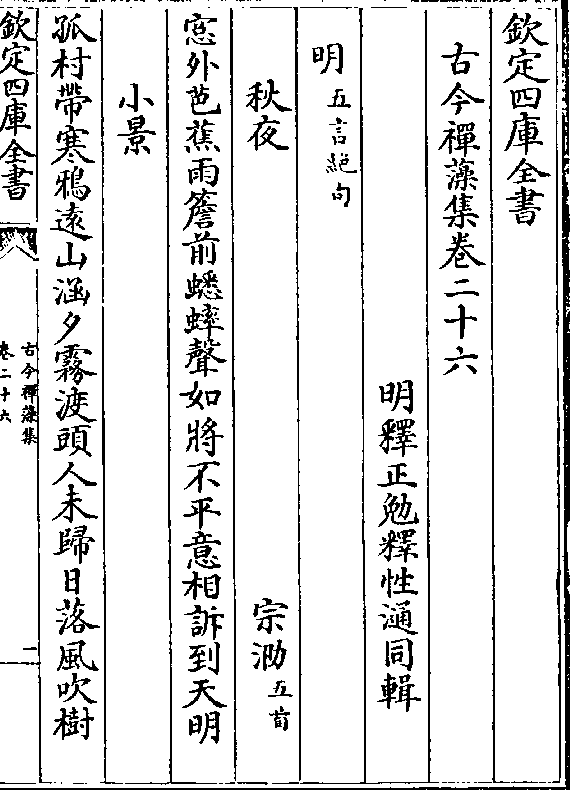 欽定四庫全書
古今禪藻集卷二十六
明釋正勉釋性㴋同輯
明五言絕句
秋夜 宗泐五首
窓外芭蕉雨簷前蟋蟀聲如將不平意相訴到天明
小景
孤村帶寒鴉逺山涵夕霧渡頭人未歸日落風吹樹
欽定四庫全書
古今禪藻集
卷二十六
一